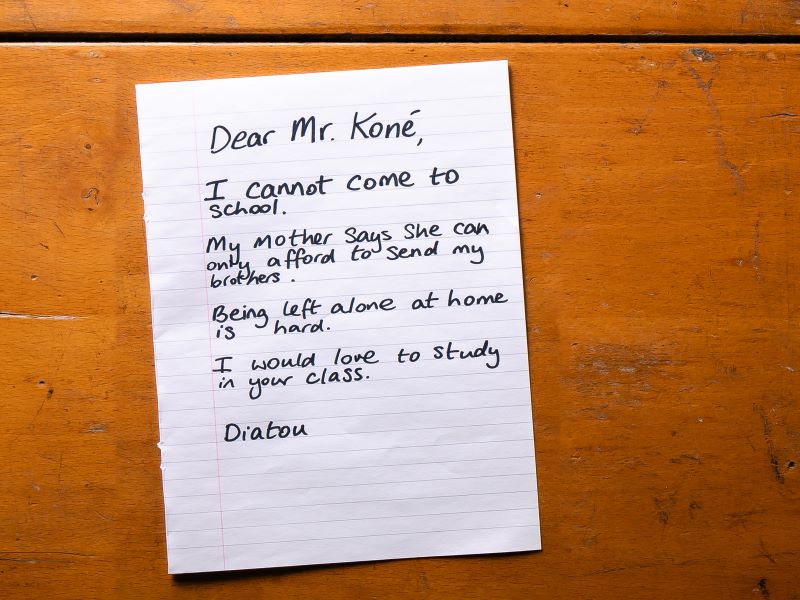 Dear Mr. Koné,
I cannot come to
school.
My mother says she can
only afford to send my
brothers.
Being left alone at home
is hard.
I would love to study
in your class.
Diatou